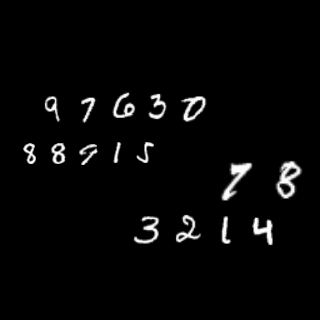 9 7 6 3 0
8 8 9 1 5
7 8
3 2 1 4